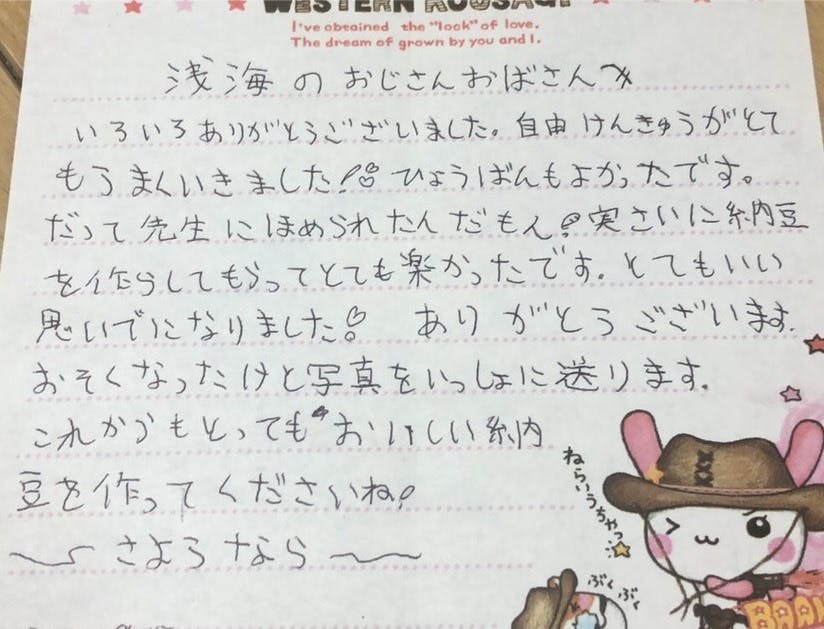 WESTERN ROUSAGI
I've obtained the "look" of love.
The dream of grown by you and I.
浅海のおじさんおばさんへ
いろいろありがとうございました。自由けんきゅうがとて
もうまくいきました!ひょうばんもよかったです。
だって先生にほめられたんだもん!実さいに納豆
を作らしてもらってとても楽かったです。とてもいい
思いでになりました!ありがとうございます。
おそくなったけど写真をいっしょに送ります。
これからもとってもおいしい納
豆を作ってくださいね!
〜さよなら〜
ねらいうちやっ
ぶくぶく
BAAN